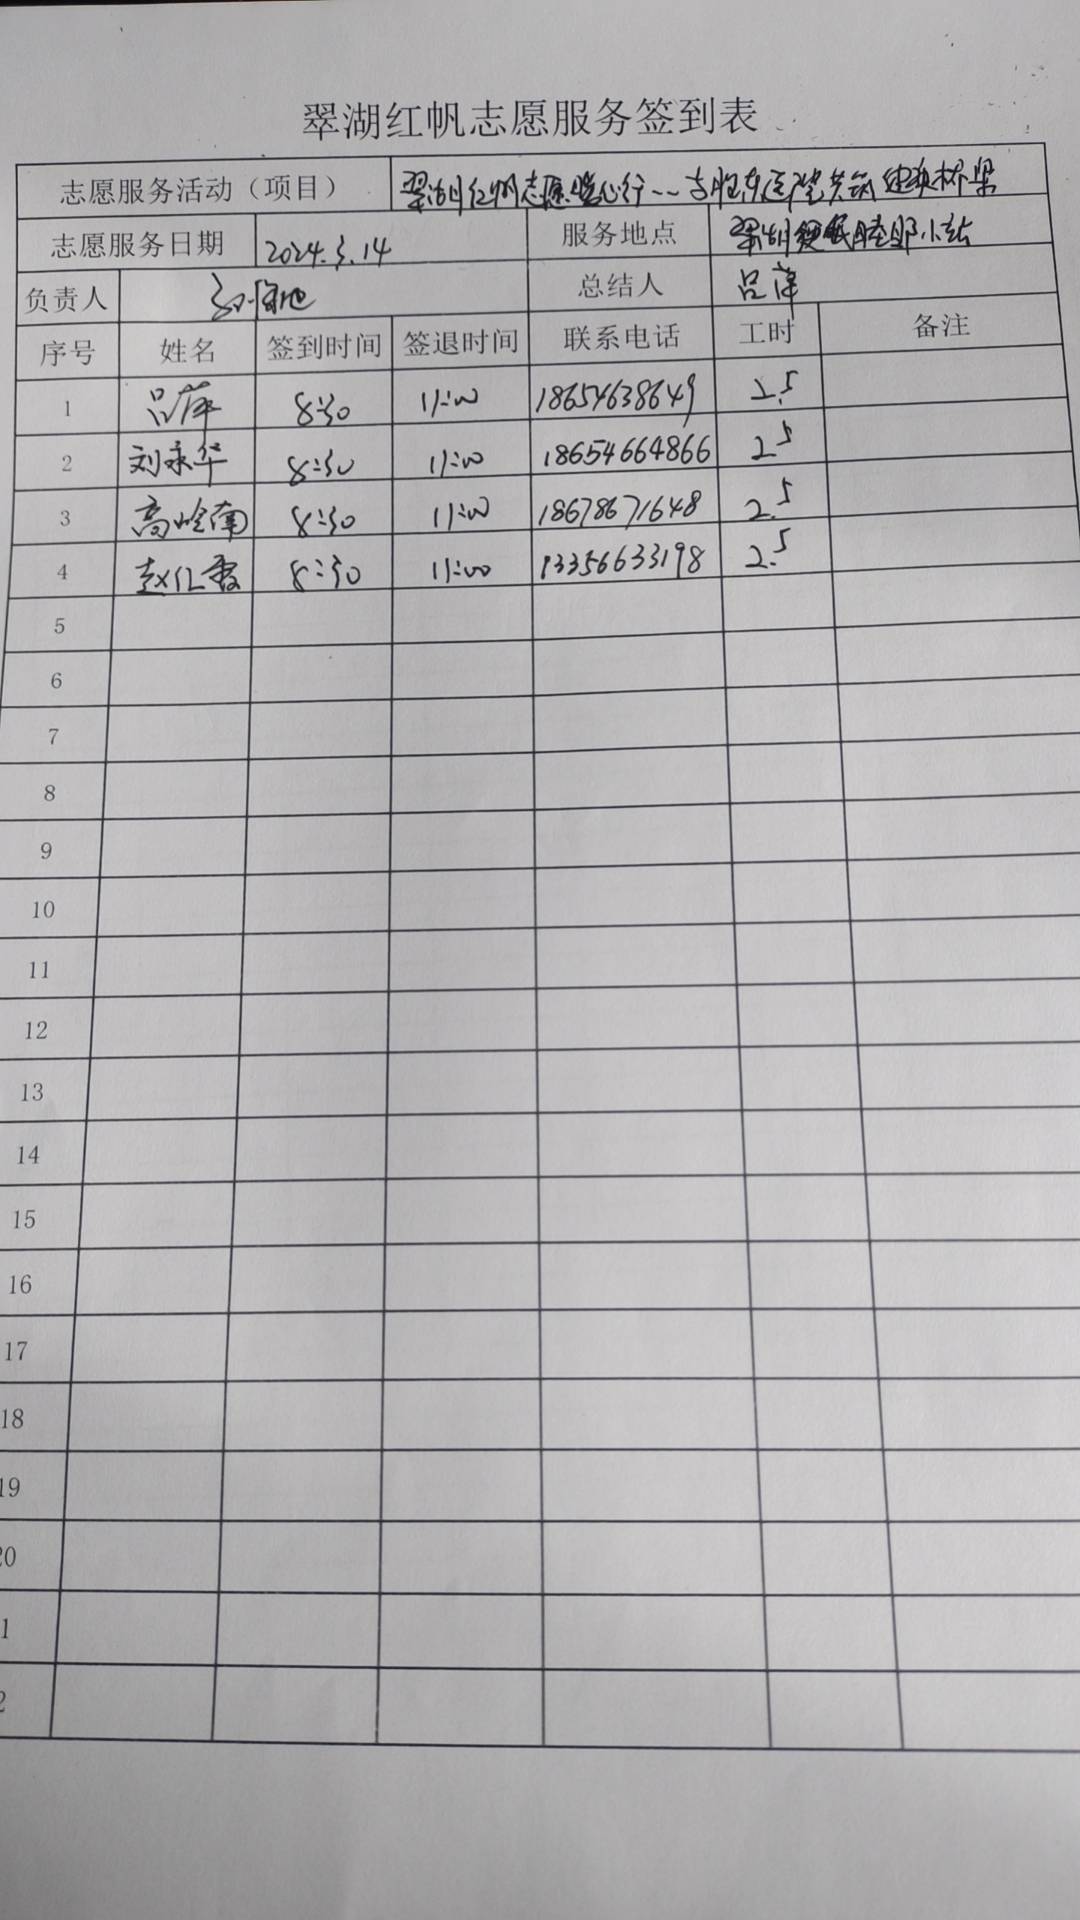 翠湖红帆志愿服务签到表
志愿服务活动（项目） 翠湖红帆志愿暖心行--与胜东医院共筑健康桥梁
志愿服务日期 2024.3.14 服务地点 翠湖 睦邻小站
负责人 总结人 吕萍
序号 姓名 签到时间 签退时间 联系电话 工时 备注
1 吕萍 8:30 11:00 18654638649 2.5
2 刘永华 8:30 11:00 18654664866 2.5
3 高岭南 8:30 11:00 18678671648 2.5
4 赵仁霞 8:30 11:00 13356633198 2.5
5
6
7
8
9
10
11
12
13
14
15
16
17
18
19
20
1
2